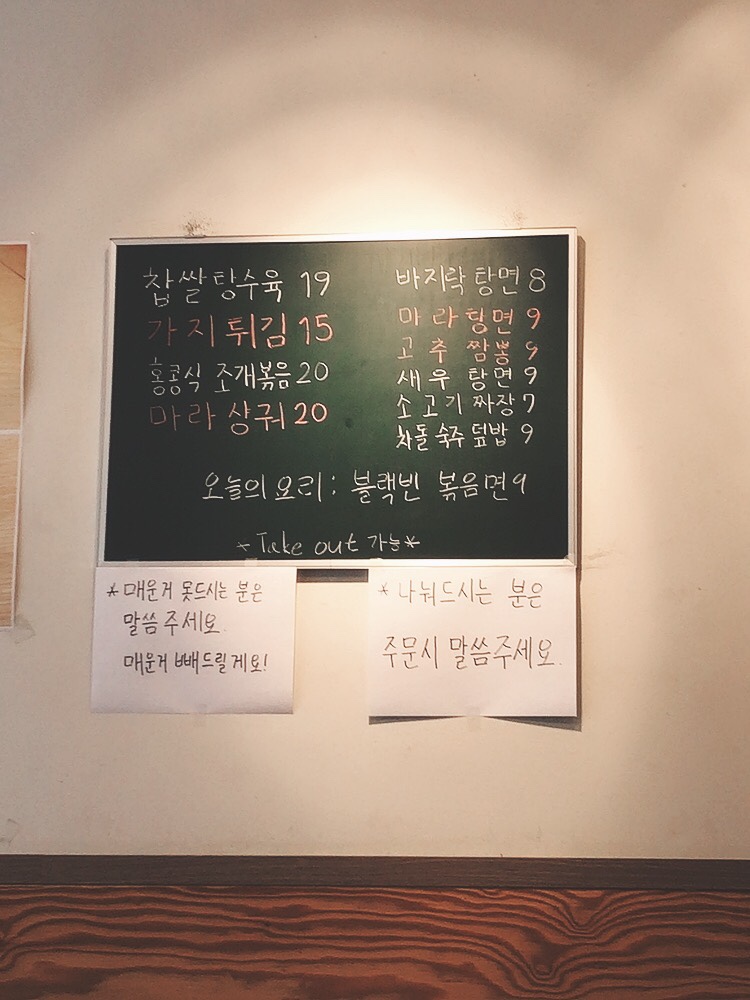 찹쌀탕수육 19
가지튀김 15
홍콩식 조개볶음 20
마라샹궈 20
바지락탕면 8
마라탕면 9
고추짬뽕 9
새우탕면 9
소고기짜장 7
차돌숙주덮밥 9
오늘의요리: 블랙빈 볶음면 9
*Take out 가능*
* 매운거 못드시는 분은
말씀주세요.
매운거 빼드릴게요!
* 나눠드시는 분은
주문시 말씀주세요.